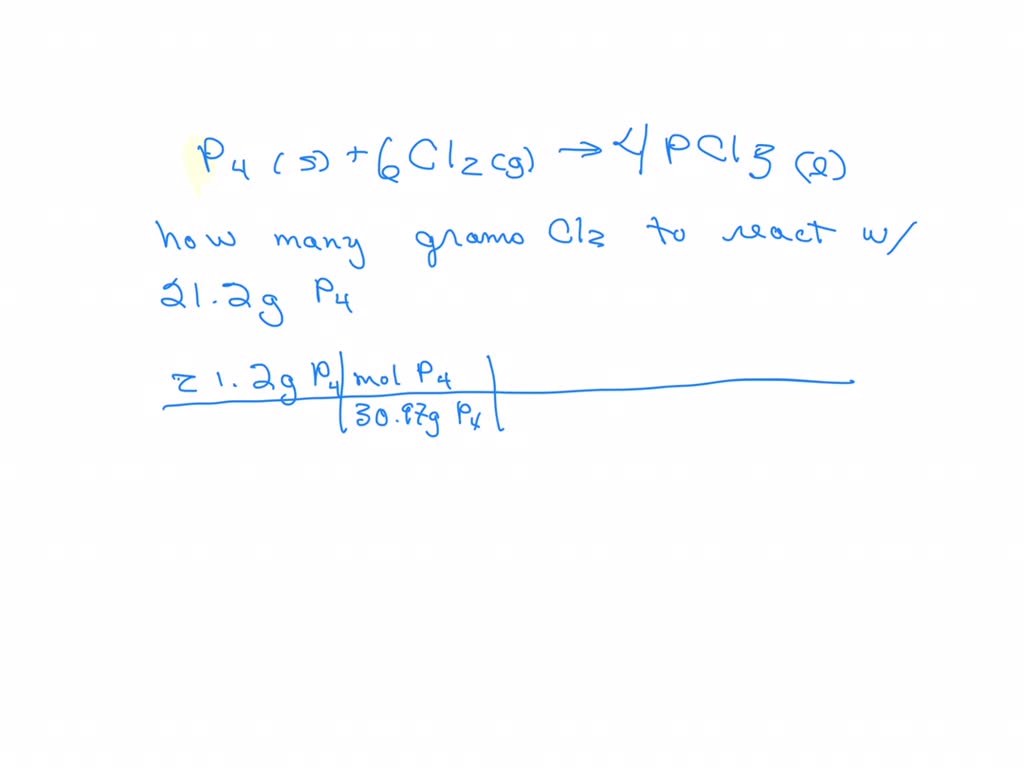 P4 (s) + 6Cl2 (g) → 4 PCl3 (l)
how many grams Cl2 to react w/
21.2g P4
21.2g P4 | mol P4 |
30.97g P4